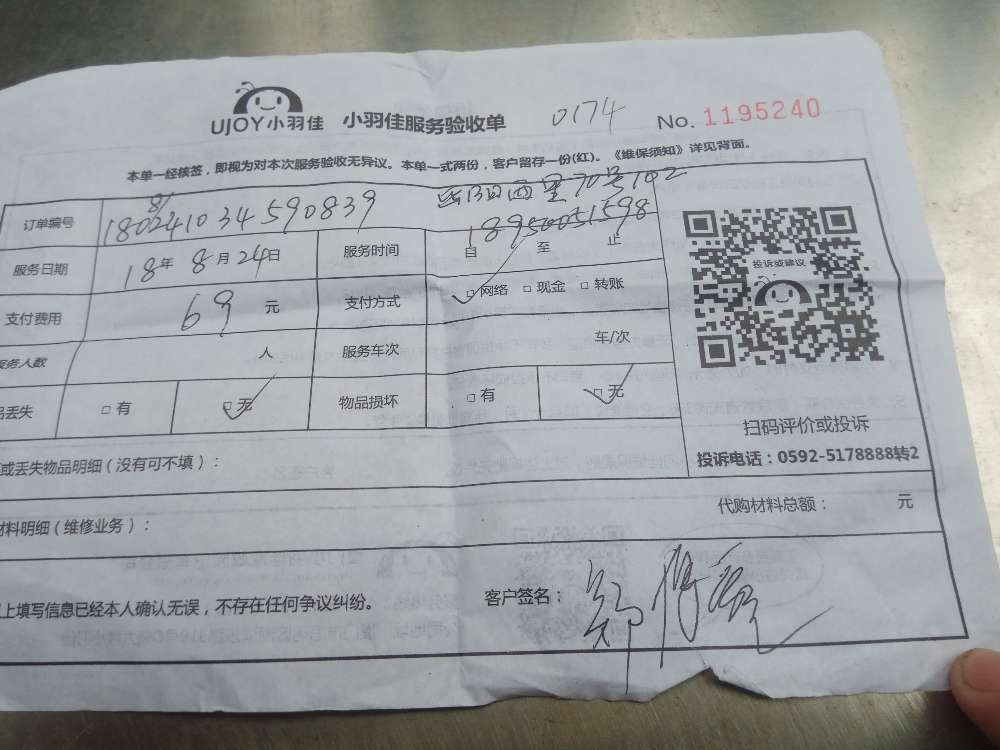 UJOY小羽佳 小羽佳服务验收单 0174 No. 1195240
本单一经核签，即视为对本次服务验收无异议。本单一式两份，客户留存一份(红)。《维保须知》详见背面。
西里70号102
订单编号 180241034590839 18950051598
81
服务日期 18年 8月24日 服务时间 自 至 止
投诉或建议
支付费用 69 元 支付方式 □网络 □现金 □转账
服务人数 人 服务车次 车/次
品丢失 □有 □无 物品损坏 □有 □无
扫码评价或投诉
或丢失物品明细（没有可不填）：
投诉电话：0592-5178888转2
材料明细（维修业务）： 代购材料总额： 元
上填写信息已经本人确认无误，不存在任何争议纠纷。 客户签名：